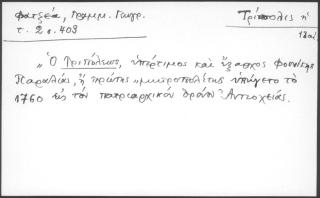 Φατζέα, Γραμμ. Γεωγρ.
τ. 2 σ. 409
Τρίπολις ἡ
„ Ὁ Τριπόλεως, ὑπέρτιμος καὶ ἔξαρχος Φοινίκης
Παραλίας, ἡ πρώτης „ μητροπολίτης ὑπήγετο τὸ
1760 εἰς τὸν πατριαρχικὸν θρόνον Ἀντιοχείας.